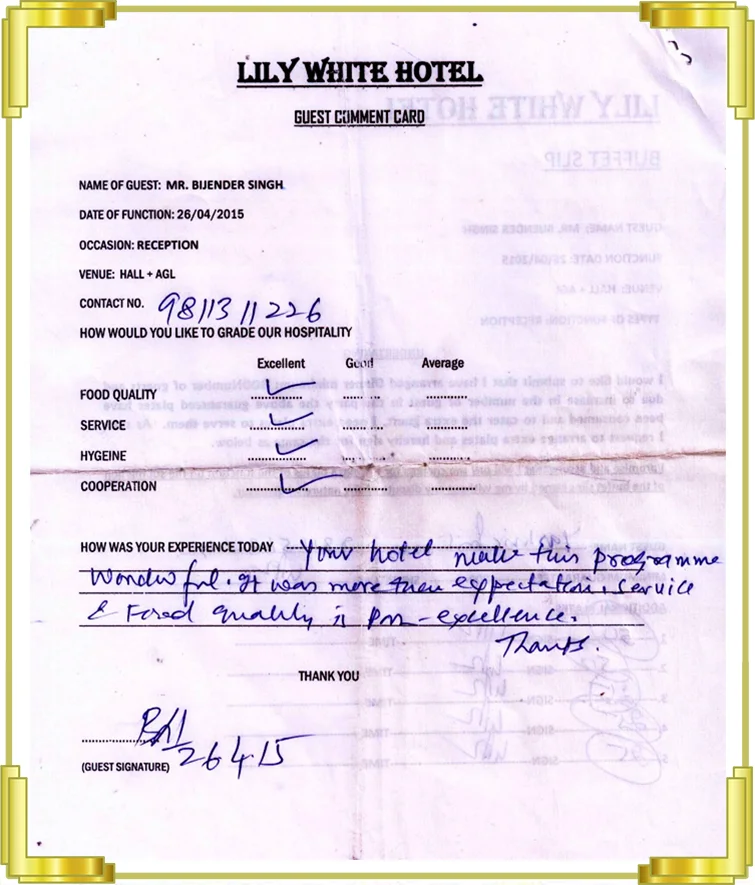 LILY WHITE HOTEL
GUEST COMMENT CARD
NAME OF GUEST: MR. BIJENDER SINGH
DATE OF FUNCTION: 26/04/2015
OCCASION: RECEPTION
VENUE: HALL + AGL
CONTACT NO. 9811311226
HOW WOULD YOU LIKE TO GRADE OUR HOSPITALITY
Excellent Good Average
FOOD QUALITY
SERVICE
HYGEINE
COOPERATION
HOW WAS YOUR EXPERIENCE TODAY Your hotel make this programme
Wonderful. It was more then expectation, service
& Food quality is par-excellence.
Thanks.
THANK YOU
26 4 15
(GUEST SIGNATURE)